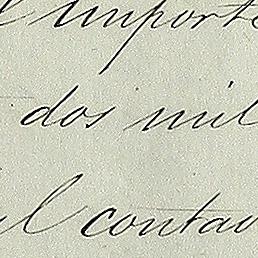 l importe
dos mil
il contad